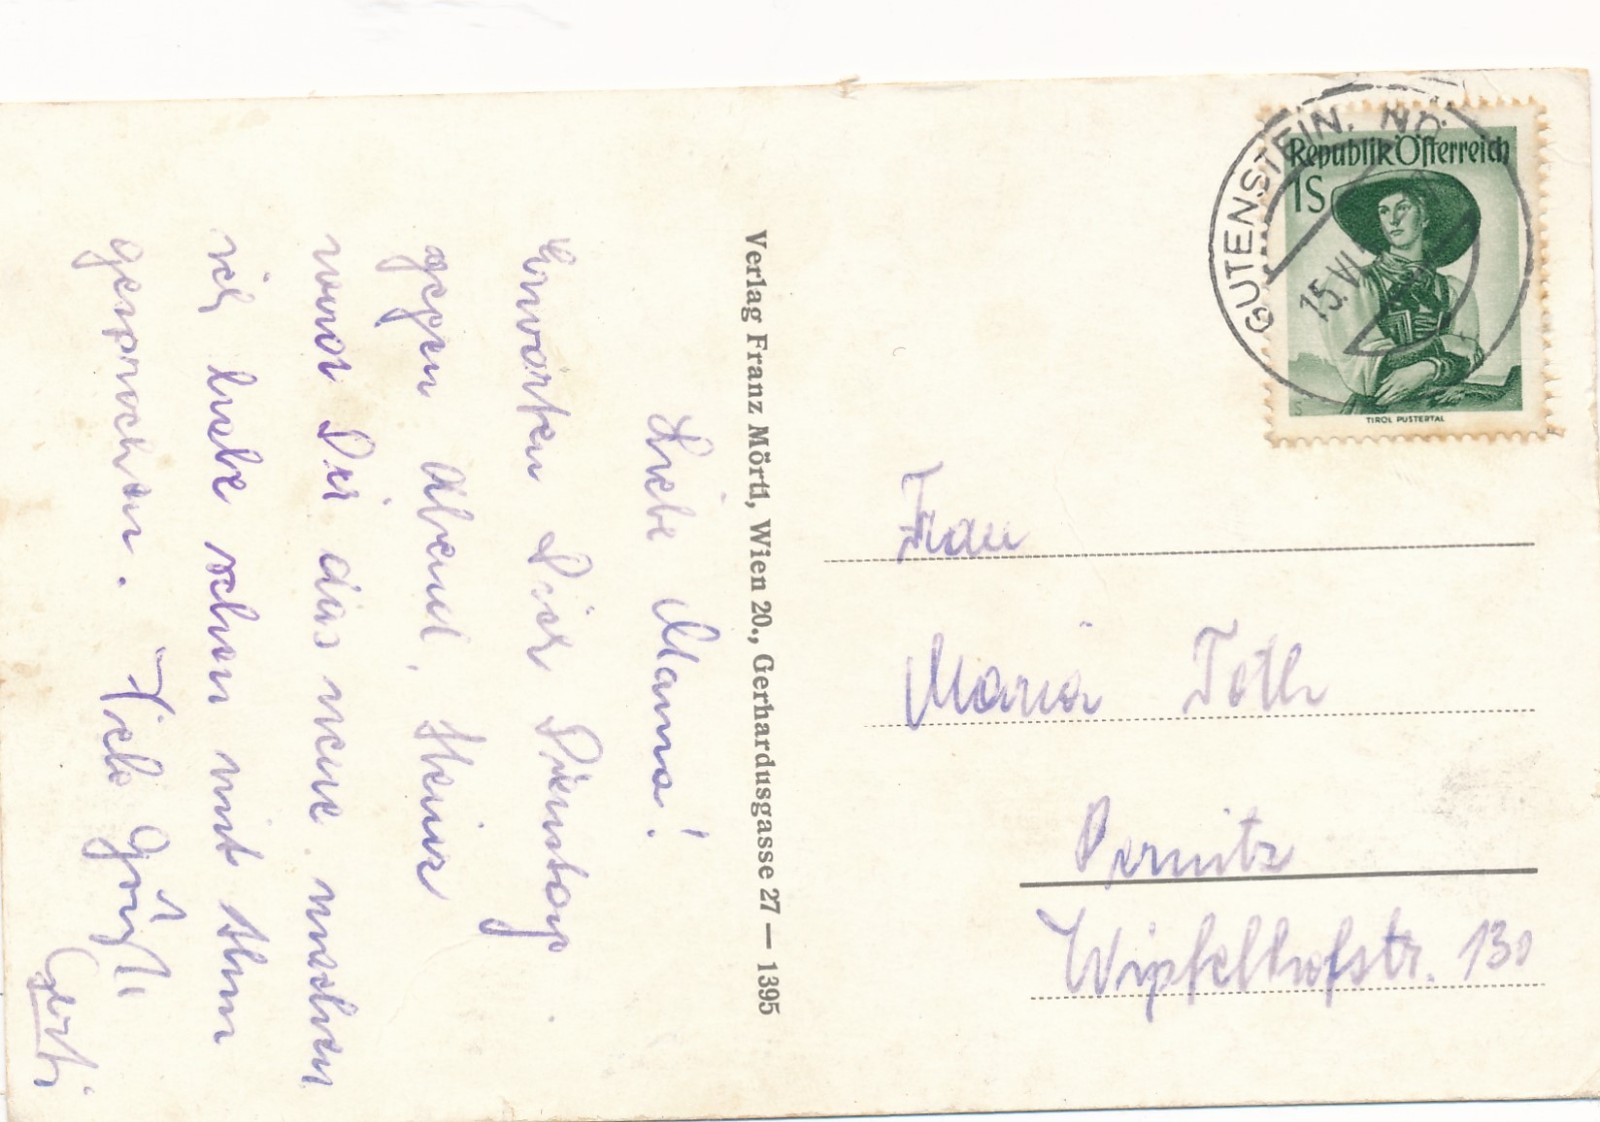 Liebe Mama!
Erwarten Dich Dienstag
gegen Abend. Heinz
wird Dir das neue machen
ich habe schon mit ihm
gesprochen. Viele Grüße
Gerti
Verlag Franz Mörtl, Wien 20., Gerhardusgasse 27 — 1395
GUTENSTEIN, NÖ.
15. VI
Republik Österreich
1S
TIROL PUSTERTAL
Frau
Maria Toth
Pernitz
Wipfelhofstr. 130